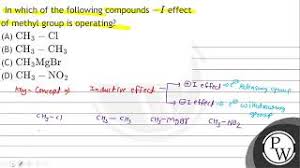 In which of the following compounds −I effect
of methyl group is operating?
(A) CH₃ − Cl
(B) CH₃ − CH₃
(C) CH₃MgBr
(D) CH₃ − NO₂
Key - Concept :- Inductive effect - → ⊕I effect → e⊖ releasing group
→ ⊖I effect → e⊖ withdrawing group
CH₃-Cl CH₃ - CH₃ CH₃ - MgBr CH₃ - NO₂
P
W